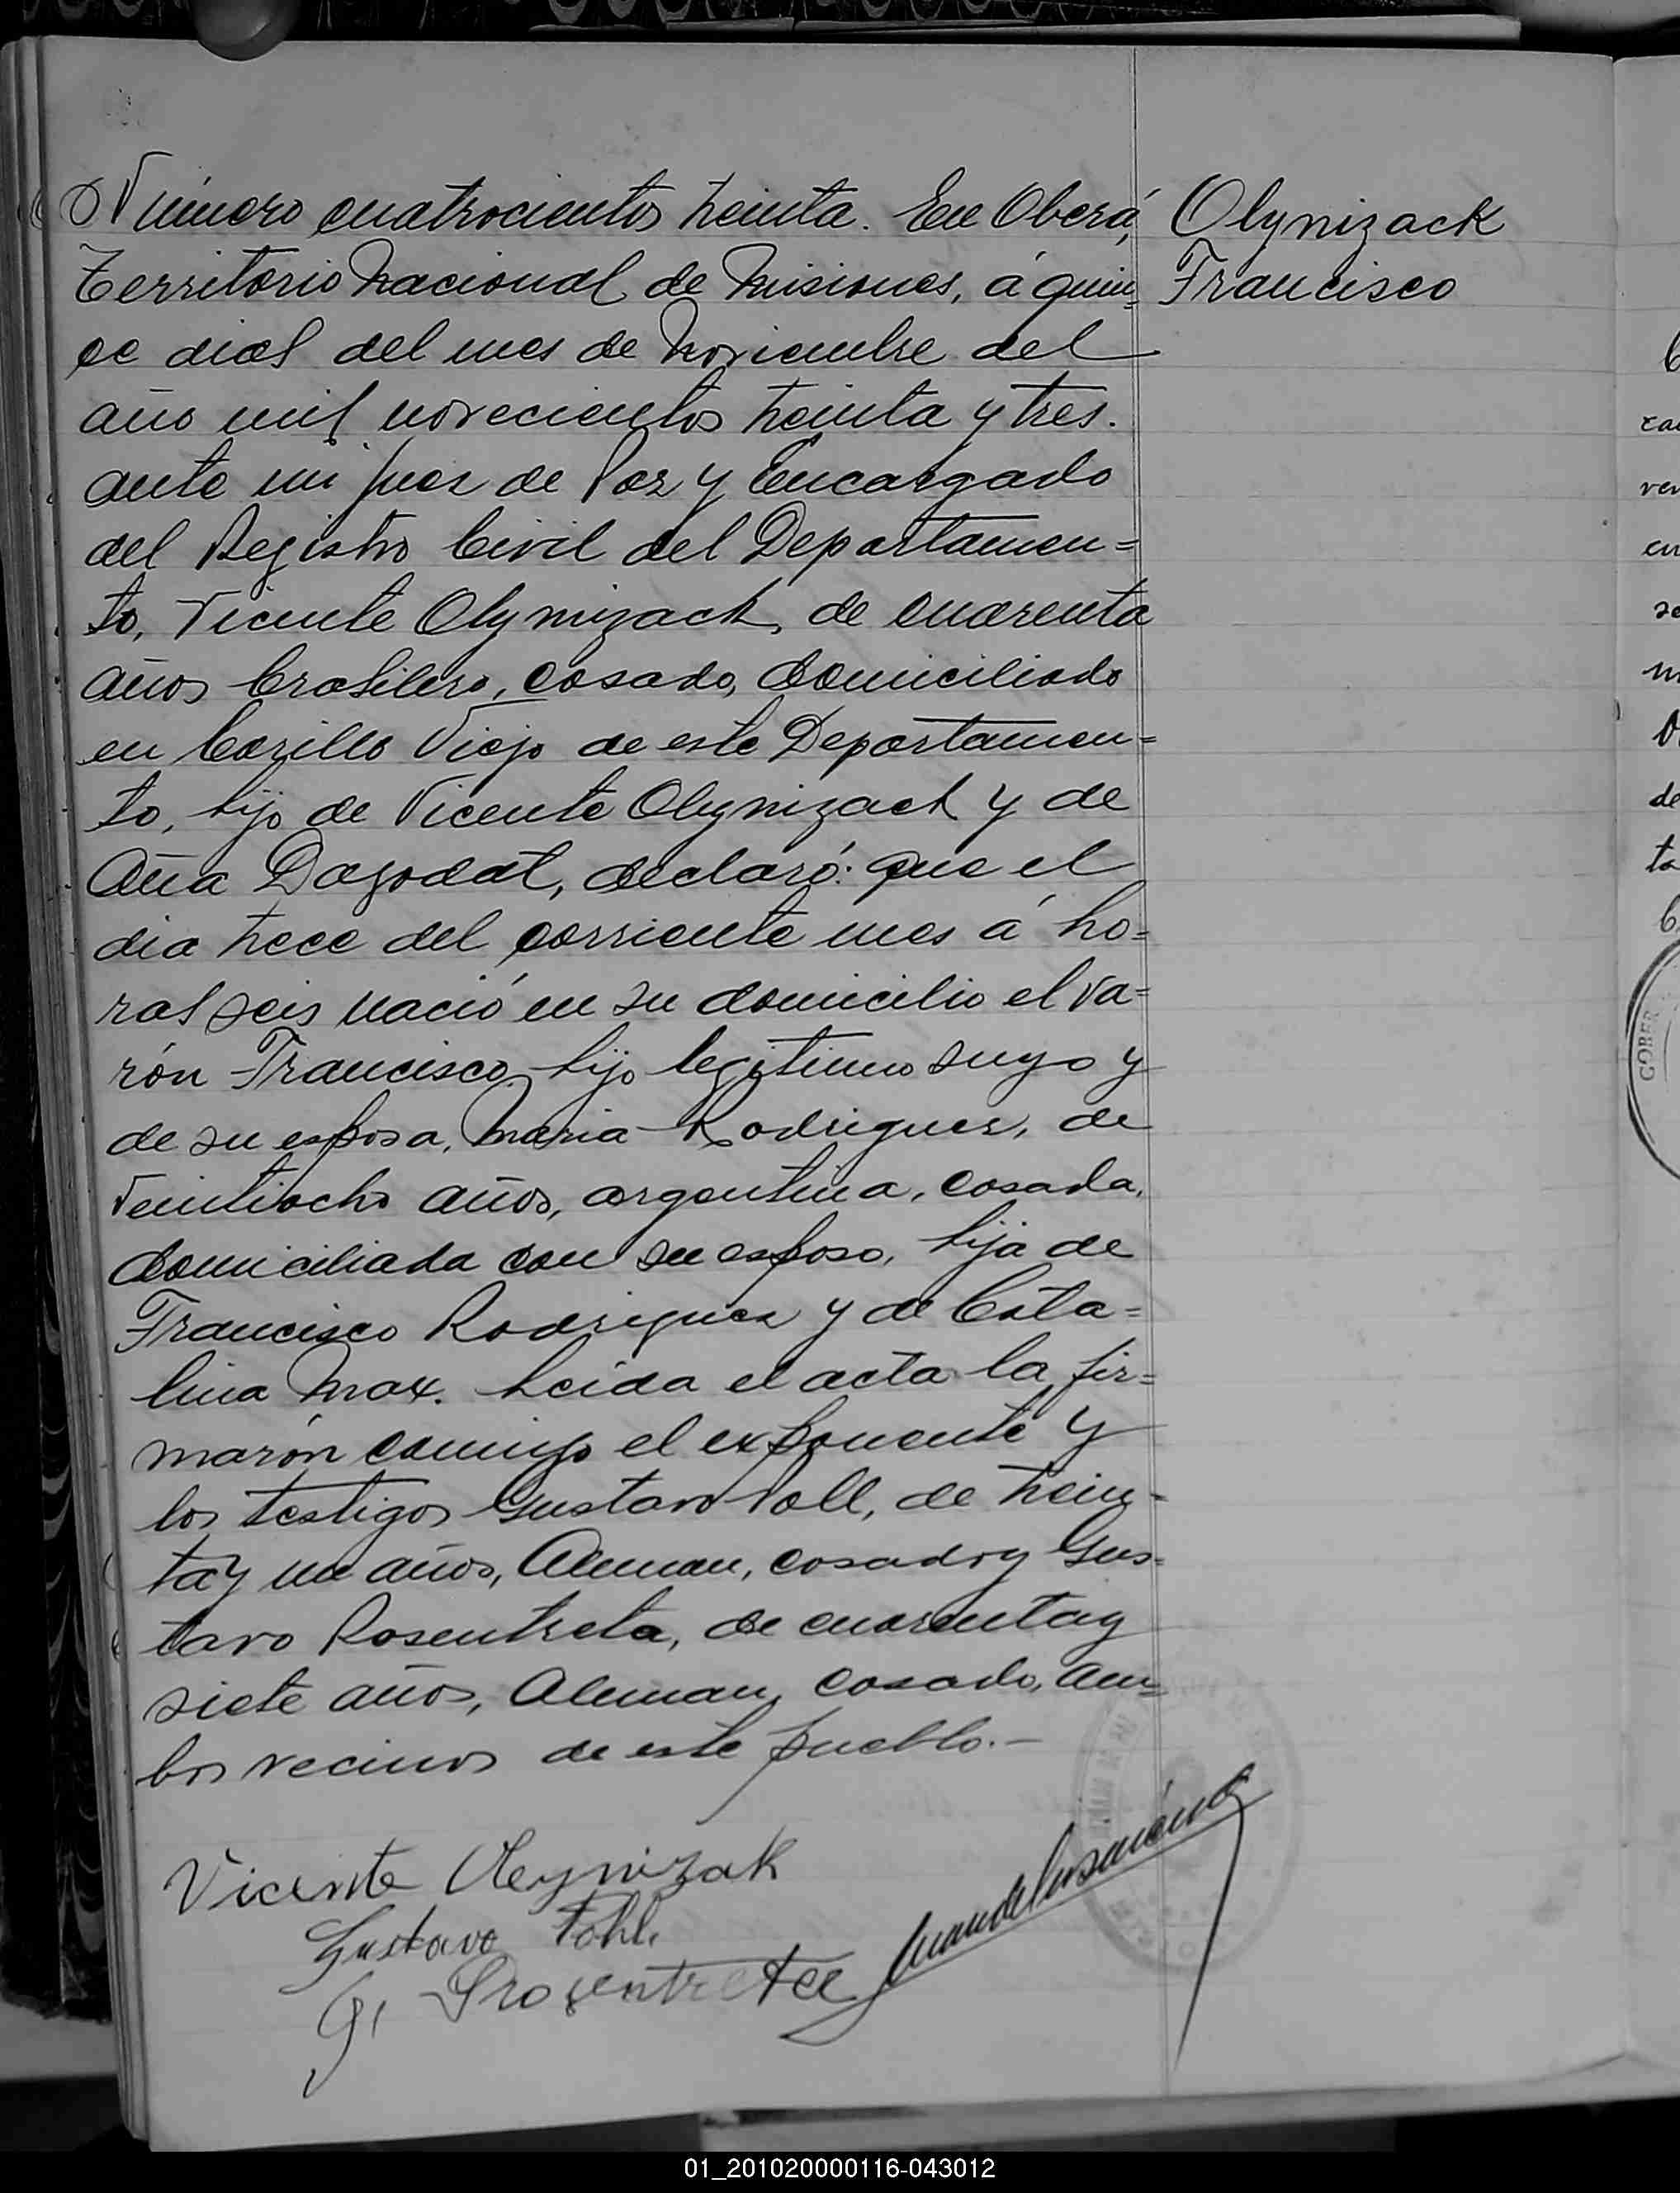 Número cuatrocientos treinta. En Oberá,
Territorio Nacional de Misiones, á quin=
ce dias del mes de Noviembre del
año mil novecientos treinta y tres.
ante mi Juez de Paz y Encargado
del Registro Civil del Departamen=
to, Vicente Olynizack, de cuarenta
años brasilero, casado, domiciliado
en Cerillo Viejo de este Departamen=
to, hijo de Vicente Olynizack y de
Ana Dagodat, declaró: que el
dia trece del corriente mes á ho=
ras seis nació en su domicilio el va=
rón Francisco, hijo legitimo suyo y
de su esposa, Maria Rodriguez, de
veintiocho años, argentina, casada,
domiciliada con su esposo, hija de
Francisco Rodriguez y de Cata=
lina Max. Leida el acta la fir=
marón conmigo el exponente y
los testigos Gustavo Poll, de trein=
ta y un años, Aleman, casado y Gus=
tavo Rosentreta, de cuarenta y
siete años, Aleman, casado, am=
bos vecinos de este pueblo.-
Vicente Oleynizak
Gustavo Pohl.
G. Rosentreter
Olynizack
Francisco
GOBER
01_201020000116-043012